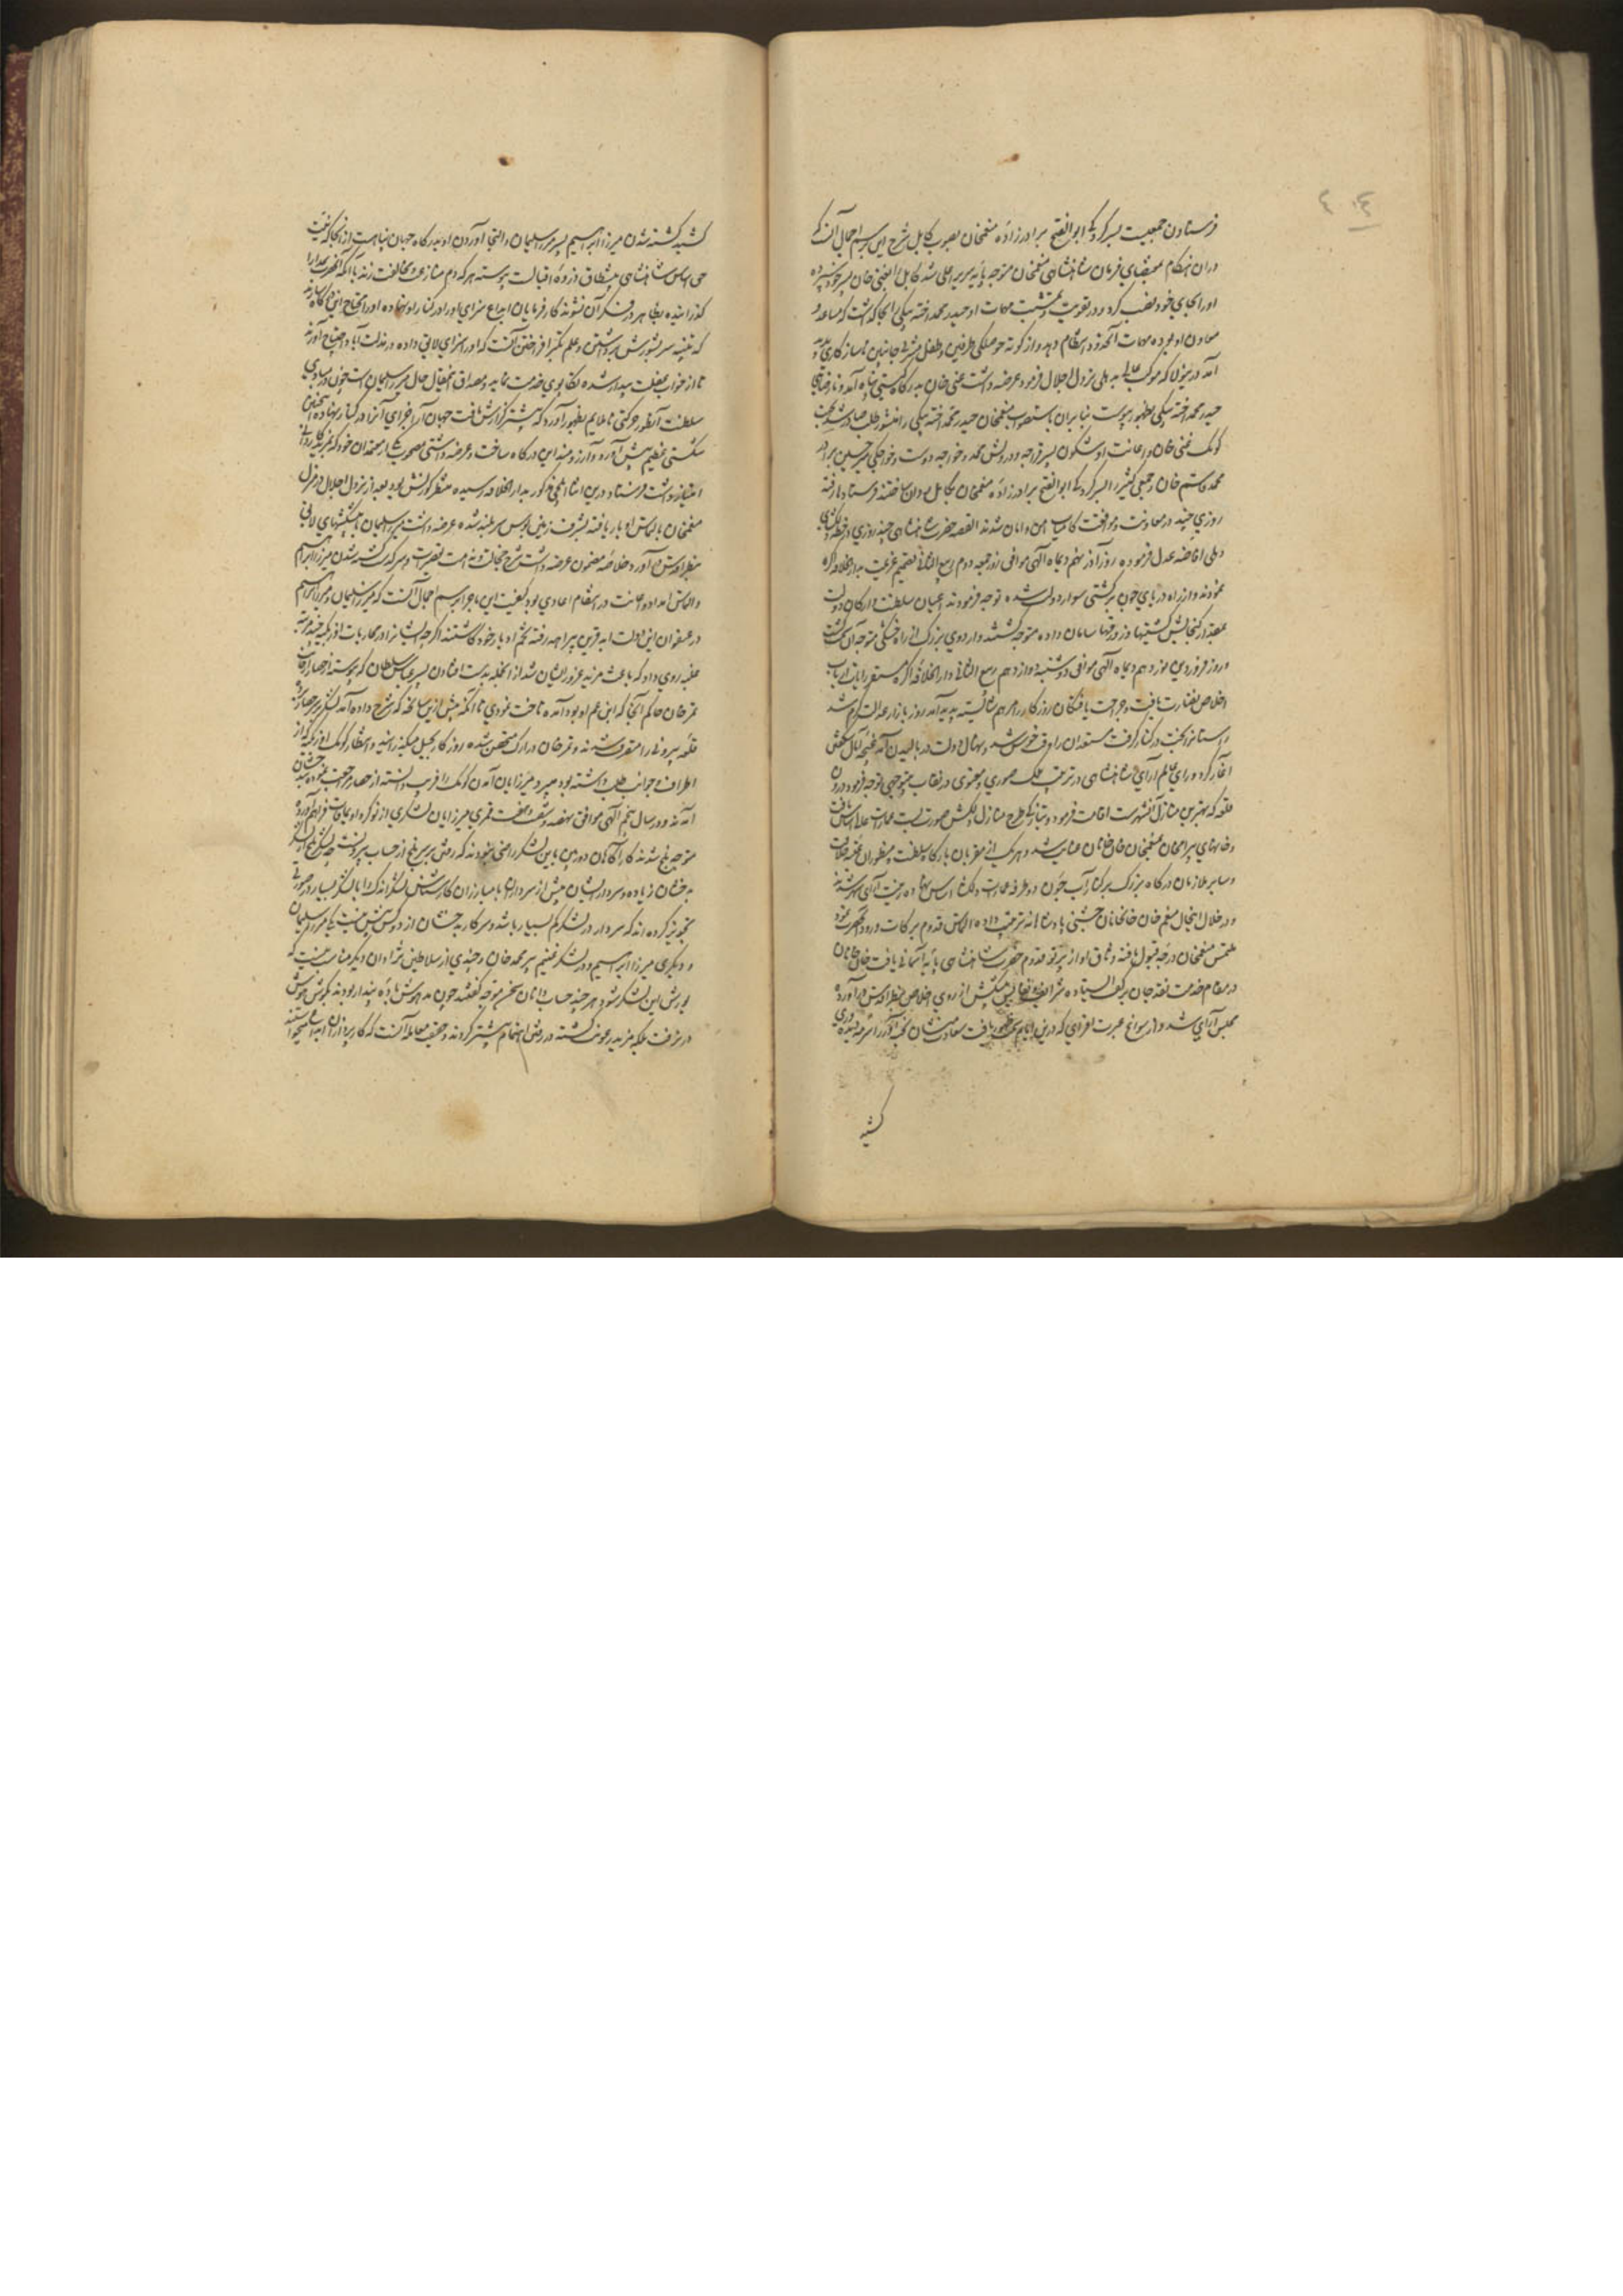 فرستادن جمعیت بسرکردگی ابوالفتح برادرزاده منعم‌خان بصوب کابل شرح این برسم اجمال آنکه
دران هنگام بمقتضای فرمان شاهنشاهی منعمخان متوجه پایه سریر اعلی شد کابل را بغنی خان پسر خود سپرده
اورا بجای خود نصب کرد و در تقویت و تمشیت مهمات او حیدر محمد اخته بیگی را آنجا گذاشت که مساعد و
معاون او بوده مهمات آنحدود را انتظام دهد و از کوته حوصلگی طرفین و طفل مشربی جانبین ناسازگاری پدید
آمد در منزلی که موکب عالی به دهلی نزول اجلال فرمود عرضه داشت غنی خان بدرگاه گیتی پناه آمد و نارضامندی
حیدر محمد اخته بیگی بظهور پیوست بنابران باستصواب منعمخان حیدر محمد اخته بیگی را منشور طلب صادر شد و بجهت
کومک غنی خان و اعانت او شگون پسر قراچه و درویش محمد و خواجه دوست و خواجگی محمد حسین برادر
محمد قاسم خان و جمعی کثیر را بسرکردگی ابوالفتح برادرزاده منعمخان بکابل روان ساختند فرستادها رفته
روزی چند در معاونت و موافقت کامیاب امن و امان شدند القصه حضرت شاهنشاهی چند روزی در خطه دلگشای
دهلی افاضه عدل فرموده روز آذر نهم دیماه الهی موافق روز جمعه دوم ربیع الثانی تصمیم عزیمت بدار الخلافه اگره
نمودند و از راه دریای جون بر کشتی سوار دولت شده توجه فرمودند اعیان سلطنت و ارکان دولت
بقدر گنجایش کشتیها و زورقها سامان داده متوجه گشتند و اردوی بزرگ از راه خشکی متوجه آن گشت
و روز فروردین نوزدهم دیماه الهی موافق دوشنبه دوازدهم ربیع الثانی دار الخلافه اگره مستقر رایات
اخلاص نضارت یافت و جراحت یافتگان روزگار را مرهم شایسته پدید آمد روز بازار عدالت گرم شد
راستان را بخت در کنار گرفت مستعدان را وقت خوش شد و نهال دولت در بالیدن آمد غنچه آمال شکفتن
آغاز کرد و رای عالم آرای شاهنشاهی در تربیت ملک صوری و معنوی در نقاب بی توجهی توجه فرمود و درون
قلعه که بهترین منازل آنشهرست اقامت فرمود و بتازگی طرح منازل دلکش صورت بست عمارات عالی اساس یافت
و خانهای بیرامخان بمنعمخان خانخانان عنایت شد و هر یک از مقربان بارگاه سلطنت و منظوران
و سایر ملازمان درگاه بزرگ بر کنار آب جون دو طرفه عمارات دلگشا اساس نهاده زینت آرای شهر شدند
و در خلال اینحال منعم خان خانخانان جشنی پادشاهانه ترتیب داده التماس قدوم برکات ورود آنحضرت نمود
ملتمس منعمخان درجه قبول یافته وثاق او از پرتو قدوم حضرت شاهنشاهی پایه آسمانی یافت خان خانان
در مقام خدمت نقد جان بر کف ایستاده شرایف و نفایس پیشکش از روی اخلاص بنظر اقدس درآورده
مجلس آرای شد و از سوانح عبرت افزای که درین ایام بظهور یافت
کشته
کشته شدن میرزا ابراهیم پسر میرزا سلیمان و التجا آوردن او بدرگاه جهان پناه است از آنجا که نیت
حق اساس شاهنشاهی پیشطاق ذروه اقبالست پیوسته هر که دم منازعت و مخالفت زند با آنکه آنحضرت بمدارا
گذرانیده بظاهر در فکر آن نشوند کارفرمایان ابداع سزای او را در کنار او نهاده اورا محتاج این درگاه سازند
که نتیجه سر بشورش برداشتن و علم تکبر افراختن آنست که اورا سزای لایق داده در مذلت آباد احتیاج آورند
تا از خواب غفلت بیدار شده تکاپوی خدمت نماید و مصداق این مقال حال میرزا سلیمان است چون در مبادی
سلطنت آنطور حرکتی ناملایم بظهور آورد که پیشتر گزارش یافت جهان آرا جزای آنرا در کنار نهاده اینچنین
شکستی عظیم پیش آورد و آرزومند این درگاه ساخت و عرضه داشتی مصحوب یکی از معتمدان خود که بمزید کاردانی
امتیاز داشت فرستاد و درین اثنا ایلچی مذکور بدار الخلافه رسیده منتظر کورنش بود بعد از نزول اجلال در منزل
منعمخان بالتماس او بار یافته بشرف زمین بوس سربلند شده عرضه داشت میرزا سلیمان با پیشکشهای لایق
بنظر اقدس درآورد خلاصه مضمون عرضه داشت شرح خجالت و ندامت تقصیرات و سرگذشت کشته شدن میرزا ابراهیم
و التماس امداد و اعانت در انتقام اعادی بود کیفیت این ماجرا برسم اجمال آنست که میرزا سلیمان و میرزا ابراهیم
در عنفوان این دولت ابد قرین بیراهه رفته تخم ادبار خود کاشتند اگرچه ایشانرا در محاربات اوزبکیه چند مرتبه
غلبه روی داد که باعث مزید غرور ایشان شد از آنجمله بدست افتادن پسر عباس سلطان که پیوسته از حصار
تمرخان حاکم آنجا که ابن عم او بود آمده تاخت نمودی تا آنکه پیش ازین سانحه که شرح داده آمد لشکر بر سر حصار بردند
قلعه بیرونی را متصرف شدند و تمرخان در ارک متحصن شده روزگار بحیل میگذرانید و انتظار کومک اوزبکیه که از
اطراف و جوانب طلب داشته بود میبرد میرزایان آمدن کومک را قریب دانسته از حصار مراجعت نموده به بدخشان
آمدند و در سال پنجم الهی موافق نهصد و شصت و هفت قمری میرزایان لشکری از نوکر و اویماقات فراهم آورده
متوجه بلخ شدند کارآگاهان دوربین باین لشکر راضی نبودند که رفتن بر سر بلخ از حساب بیرونست چه لشکر بلخ از لشکر
بدخشان زیاده و سردار ایشان بیش از سردار ما با مبارزان کارشناس لشکر اندک را با لشکر بسیار در صورتی
تجویز کرده اند که سردار در لشکر کم بسیار باشد و سرکار بدخشان از دو کس بیش نیست یکی میرزا سلیمان
و دیگری میرزا ابراهیم و در لشکر غنیم پیر محمد خان و چندی از سلاطین نژادان دیگر مناسب نیست که
یورش این لشکر شود هر چند حساب دانان سخن موجه گفتند چون مدهوش باده پندار بودند بگوش هوش
در نرفت بلکه مزید رعونت گشته در رفتن اهتمام بیشتر کردند و حقیقت معامله آنست که کارپردازان